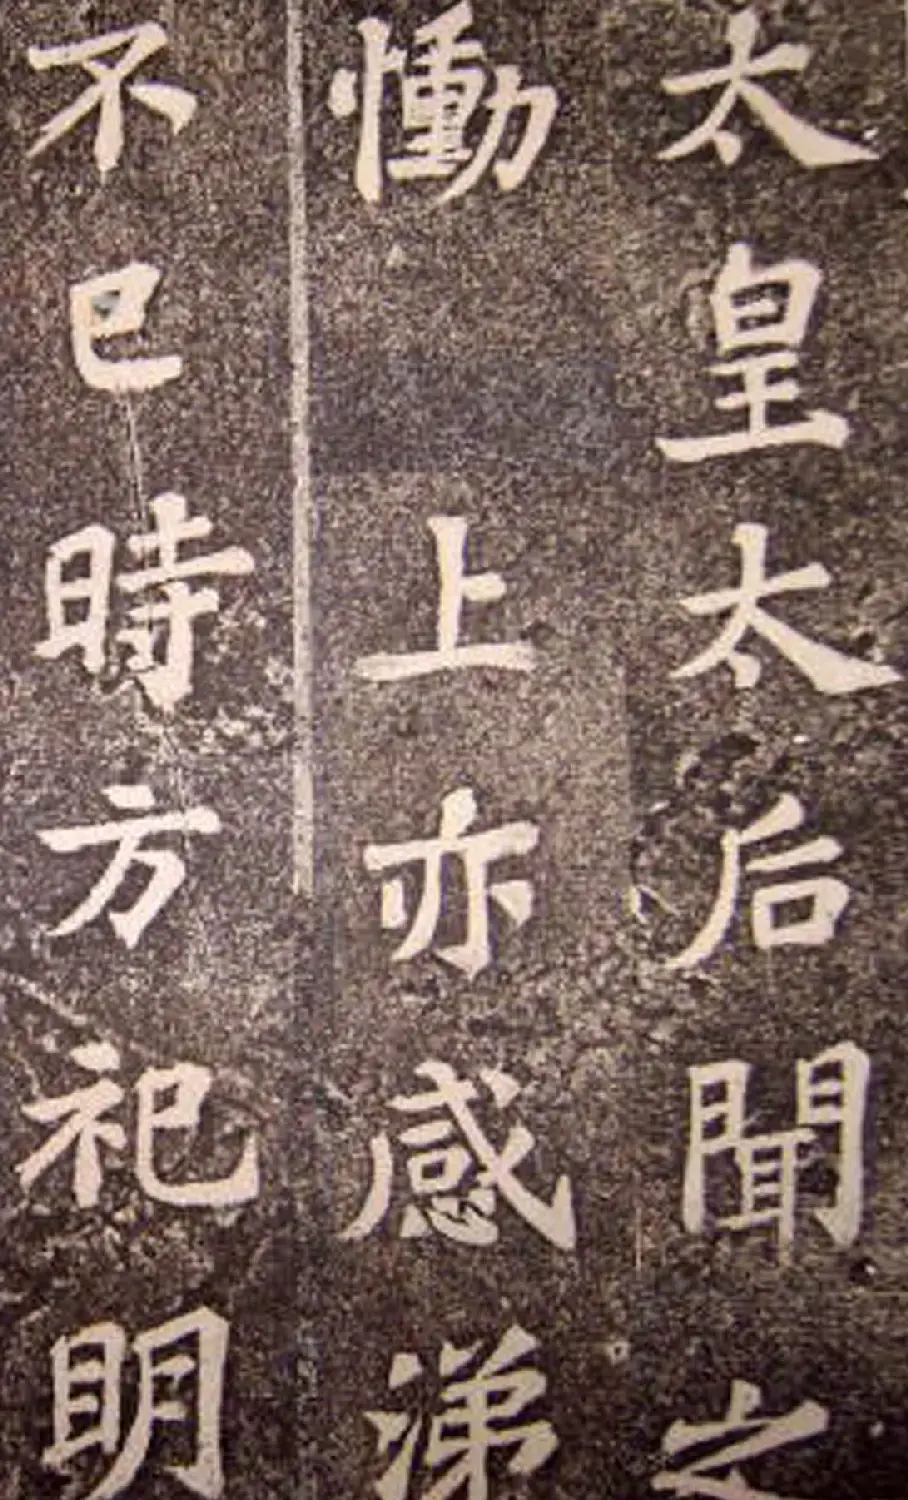 太皇太后聞之
慟 上亦感涕
不已時方祀明